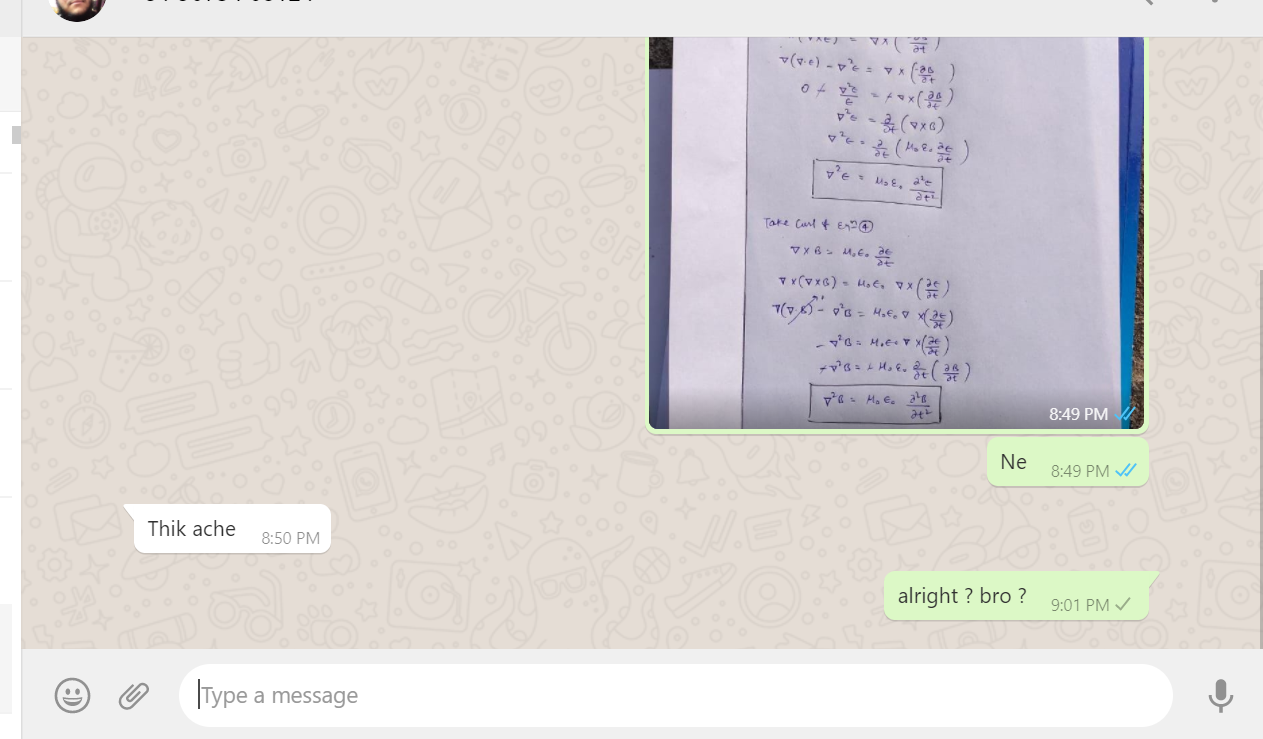 ∇(∇·E) - ∇²E = ∇ × (-∂B/∂t)
∇²E = ∂/∂t (∇×B)
∇²E = ∂/∂t (μ₀ε₀ ∂E/∂t)
∇²E = μ₀ε₀ ∂²E/∂t²
Take Curl of Eqn ④
∇×B = μ₀ε₀ ∂E/∂t
∇×(∇×B) = μ₀ε₀ ∇×(∂E/∂t)
∇(∇·B) - ∇²B = μ₀ε₀ ∇ ×(∂E/∂t)
-∇²B = μ₀ε₀ ∇ ×(∂E/∂t)
+∇²B = + μ₀ε₀ ∂/∂t (∂B/∂t)
∇²B = μ₀ε₀ ∂²B/∂t²
8:49 PM
Ne 8:49 PM
Thik ache 8:50 PM
alright ? bro ? 9:01 PM
Type a message